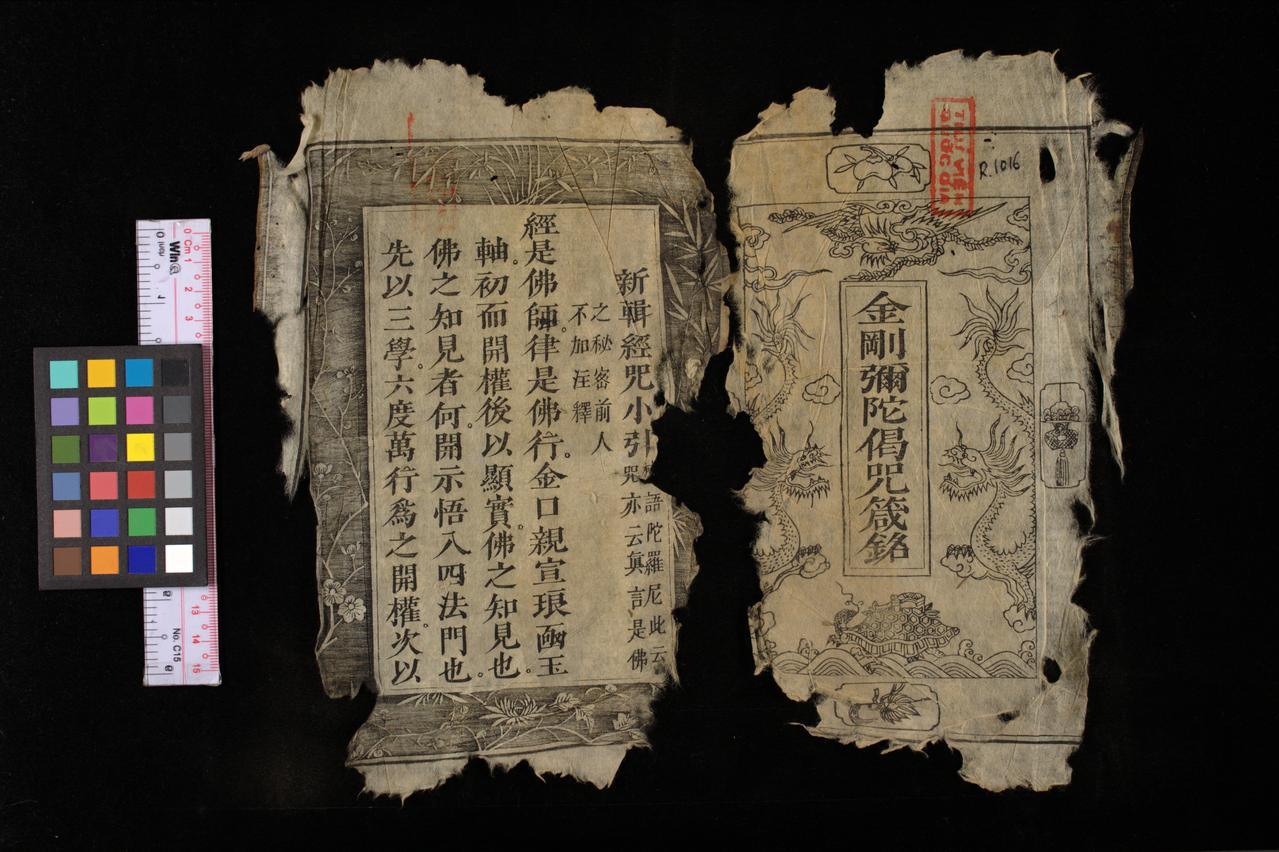 金剛彌陀偈咒箴銘
THƯ VIỆN
QUỐC GIA
R.1016
新輯經咒小引
語陀羅尼此云
咒亦云眞言是佛
之秘密前人
不加注釋
經是佛師。律是佛行。金口親宣琅凾玉
軸。初而開權後以顯實。佛之知見也。
佛之知見者何。開示悟入四法門也
先以三學。六度萬行爲之開權。次以
Cm 1
2
3
13
14
15
No. C15